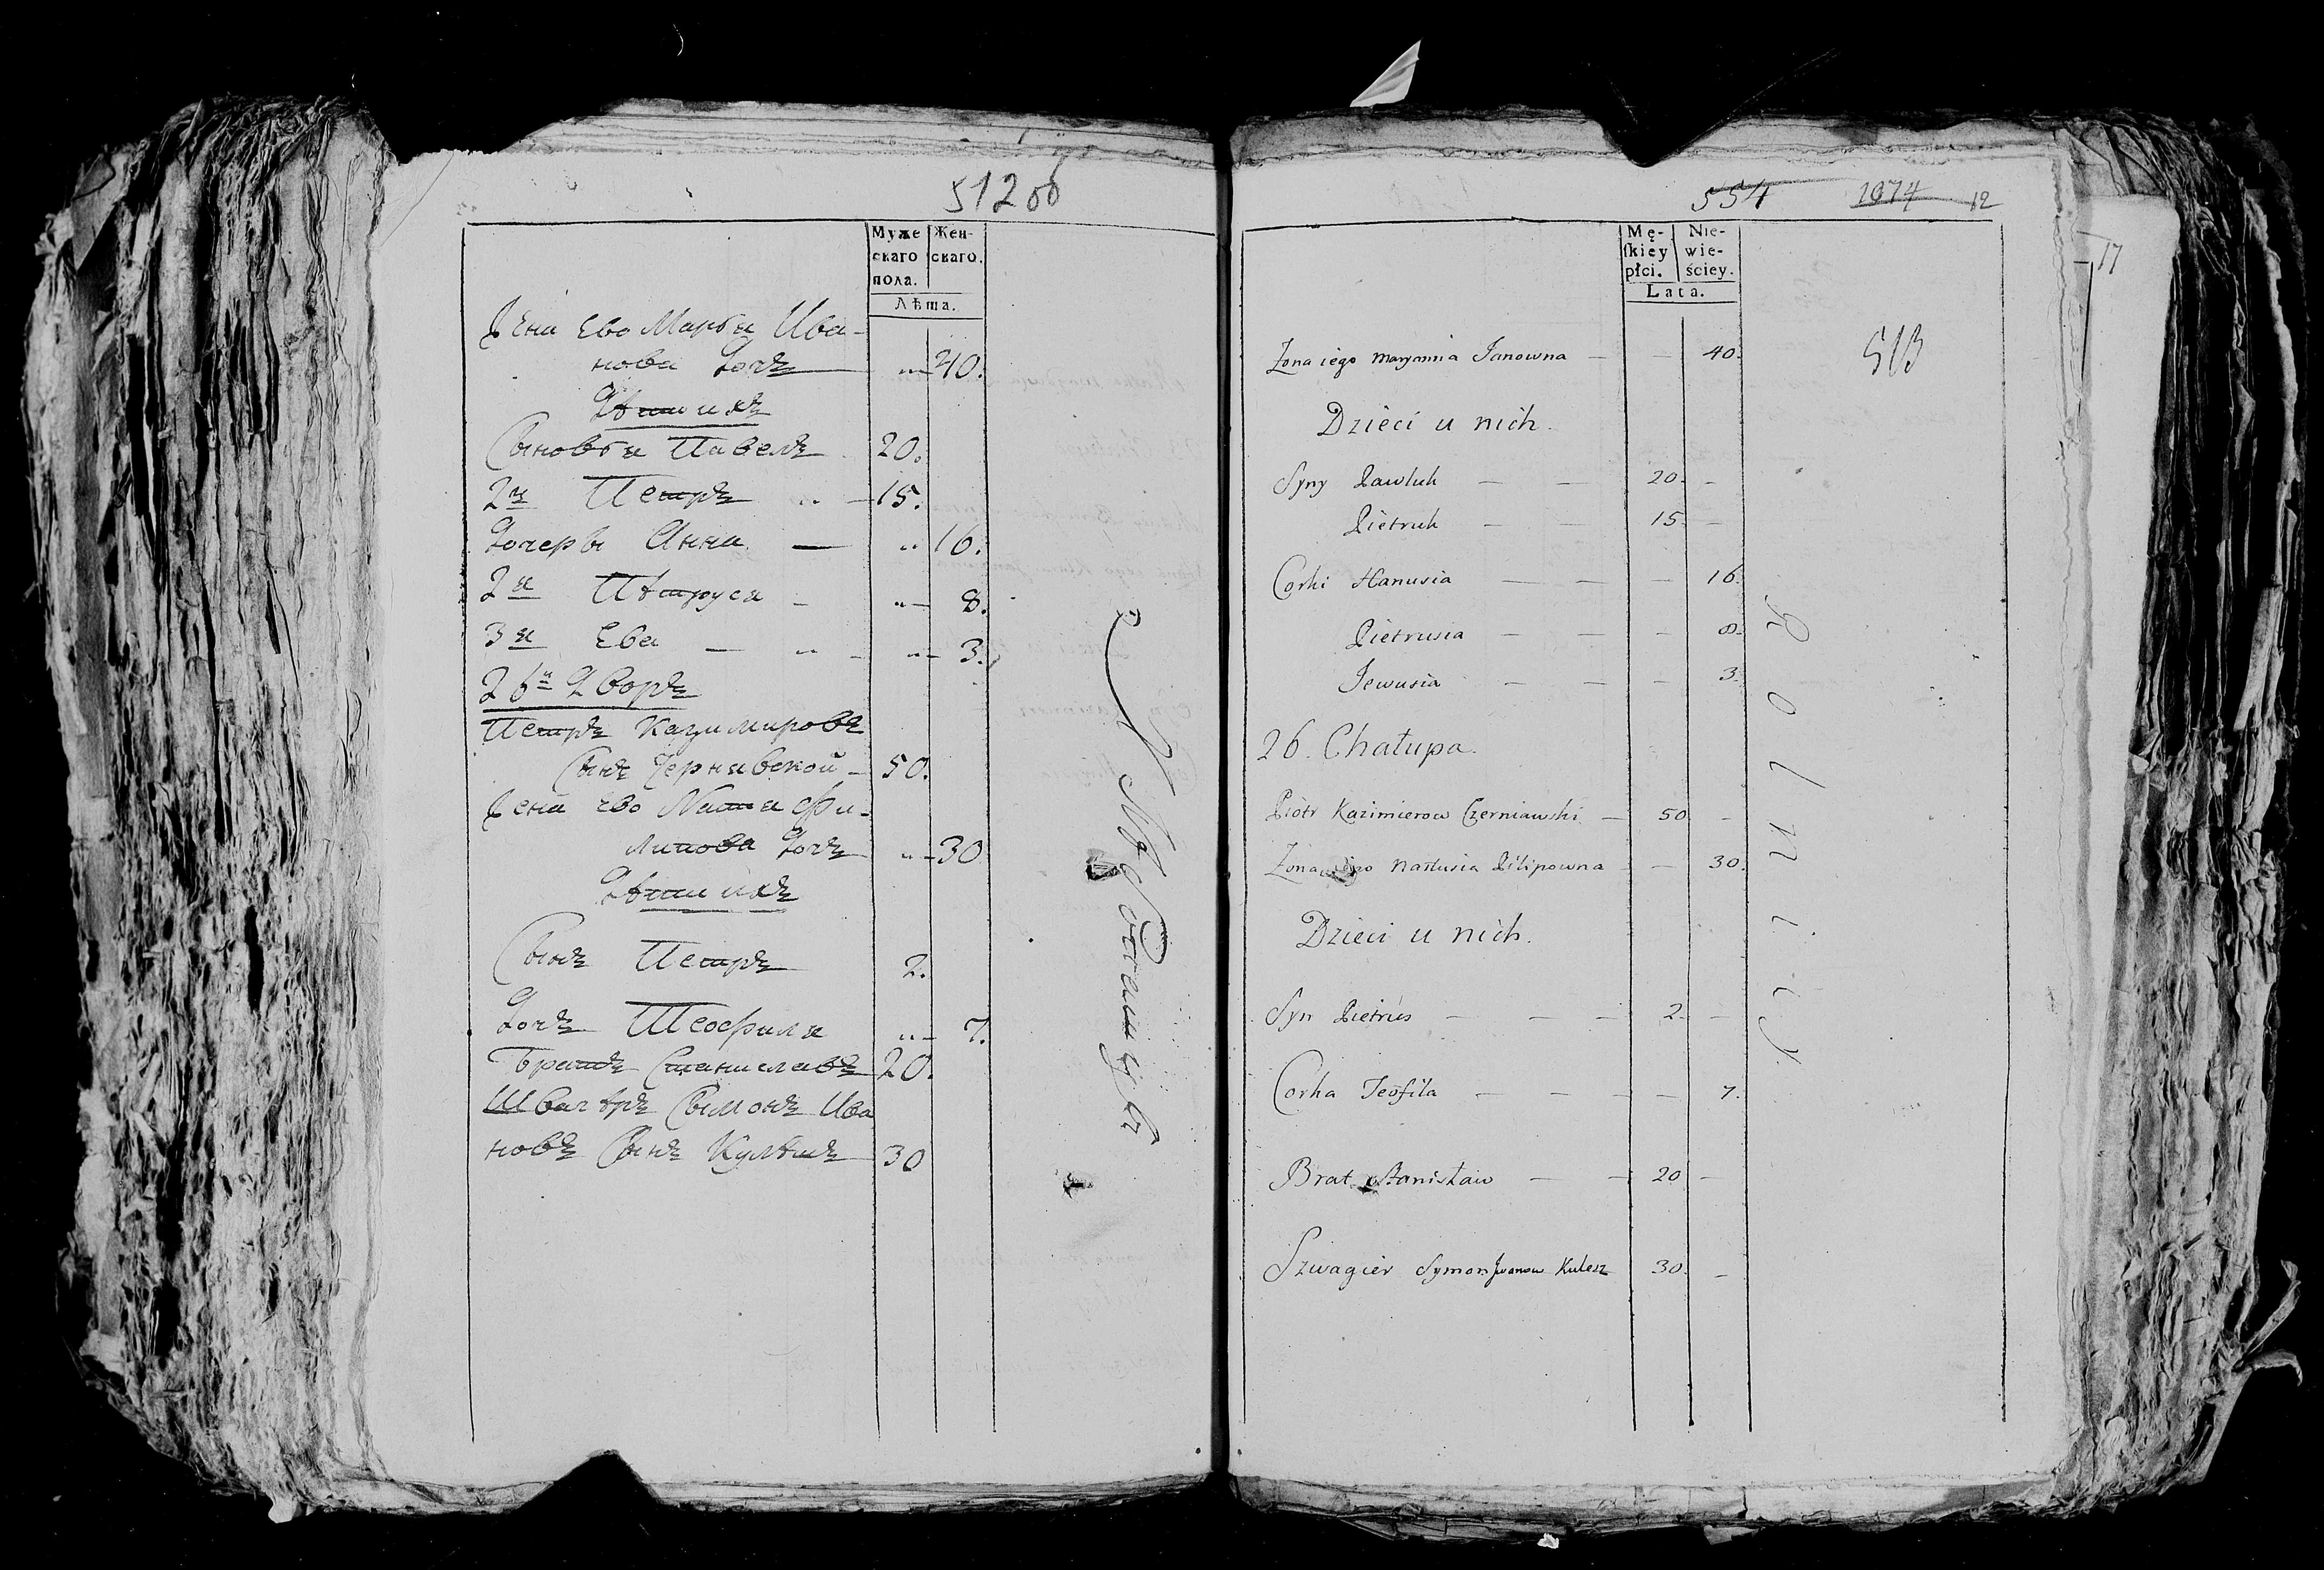 512 об
Муже
скаго
пола.
Жен-
скаго.
Лѣта.
Жена Ево Марья Ива-
нова Дочъ „ 40.
Дѣти ихъ
Сыновья Павелъ 20.
2й Петръ „ 15.
Дочеры Анна „ 16.
2я Пѣтруся „ 8.
3я Ева „ 3.
26й Дворъ
Петръ Казимировъ
Сынъ Чернявской 50.
Жена Ево Настя Фи-
липова Дочъ „ 30
Дѣти ихъ
Сынъ Петръ 2.
Дочъ Теофиля „ 7.
Братъ Станиславъ 20.
Швагѣръ Сымонъ Ива
новъ Сынъ Кулѣшъ 30
554 1074 12
17
Mę-
skiey
płci.
Nie-
wie-
ściey.
Lata.
513
Żona iego Maryanna Janowna — — 40.
Dzieci u nich.
Syny Pawluk — — 20. —
Pietruk — — 15. —
Corki Hanusia — — — 16.
Pietrusia — — — 8.
Jewusia — — — 3.
26. Chałupa.
Piotr Kazimierow Czerniawski — 50 —
Żona iego Nastusia Pilipowna — — 30.
Dzieci u nich.
Syn Pietruś — — — 2. —
Corka Teofila — — — — 7.
Brat Stanisław — — 20 —
Szwagier Symon Jwanow Kulesz 30. —
Rolnicy